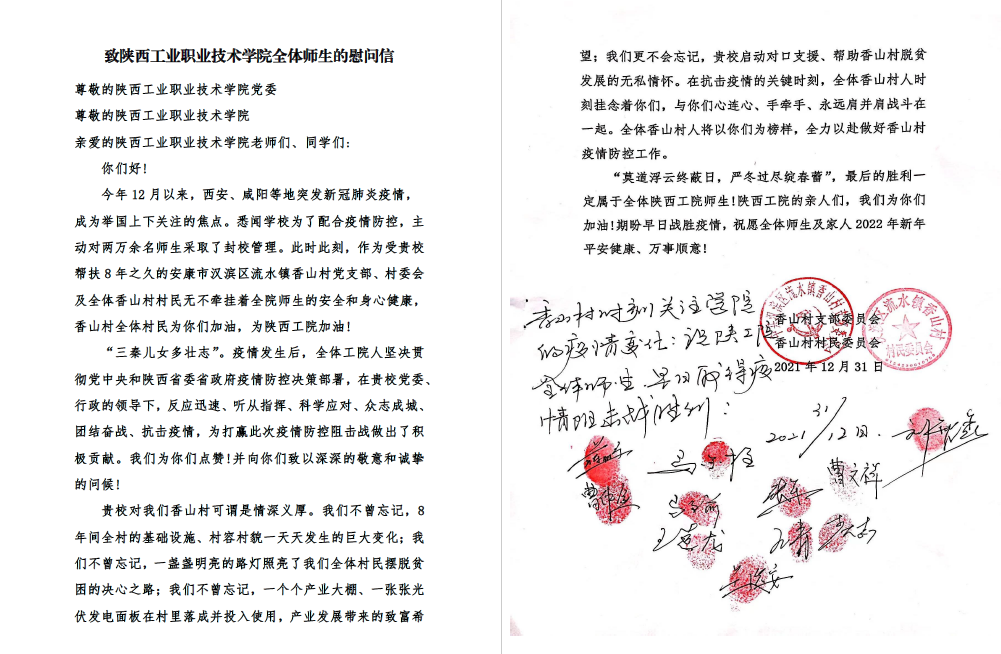 致陕西工业职业技术学院全体师生的慰问信
尊敬的陕西工业职业技术学院党委
尊敬的陕西工业职业技术学院
亲爱的陕西工业职业技术学院老师们、同学们：
你们好！
今年12月以来，西安、咸阳等地突发新冠肺炎疫情，
成为举国上下关注的焦点。悉闻学校为了配合疫情防控，主
动对两万余名师生采取了封校管理。此时此刻，作为受贵校
帮扶8年之久的安康市汉滨区流水镇香山村党支部、村委会
及全体香山村村民无不牵挂着全院师生的安全和身心健康，
香山村全体村民为你们加油，为陕西工院加油！
“三秦儿女多壮志”。疫情发生后，全体工院人坚决贯
彻党中央和陕西省委省政府疫情防控决策部署，在贵校党委、
行政的领导下，反应迅速、听从指挥、科学应对、众志成城、
团结奋战、抗击疫情，为打赢此次疫情防控阻击战做出了积
极贡献。我们为你们点赞！并向你们致以深深的敬意和诚挚
的问候！
贵校对我们香山村可谓是情深义厚。我们不曾忘记，8
年间全村的基础设施、村容村貌一天天发生的巨大变化；我
们不曾忘记，一盏盏明亮的路灯照亮了我们全体村民摆脱贫
困的决心之路；我们不曾忘记，一个个产业大棚、一张张光
伏发电面板在村里落成并投入使用，产业发展带来的致富希
望；我们更不会忘记，贵校启动对口支援、帮助香山村脱贫
发展的无私情怀。在抗击疫情的关键时刻，全体香山村人时
刻挂念着你们，与你们心连心、手牵手、永远肩并肩战斗在
一起。全体香山村人将以你们为榜样，全力以赴做好香山村
疫情防控工作。
“莫道浮云终蔽日，严冬过尽绽春蕾”，最后的胜利一
定属于全体陕西工院师生！陕西工院的亲人们，我们为你们
加油！期盼早日战胜疫情，祝愿全体师生及家人2022年新年
平安健康、万事顺意！
香山村支部委员会
香山村村民委员会
2021年12月31日
香山村时刻关注学院
的疫情变化：祝陕工院
全体师生早日取得疫
情阻击战胜利！
2021/12月31日.
曹文祥